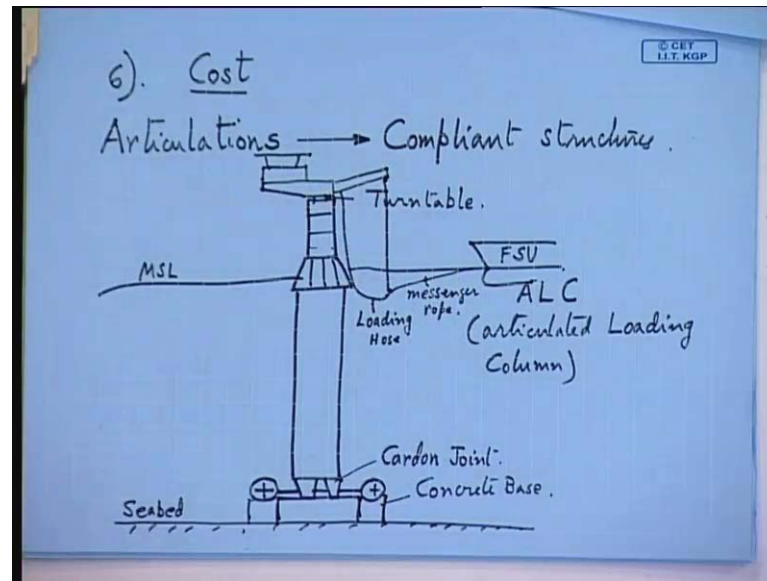 © CET
I.I.T. KGP
6). Cost
Articulations → Compliant structures.
Turntable.
MSL
FSU
messenger
rope.
Loading
Hose
ALC
(articulated Loading
Column)
Cardon Joint.
Concrete Base.
Seabed